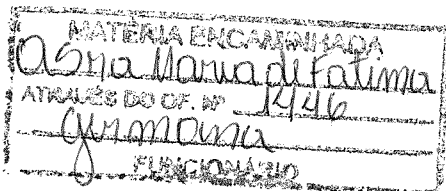 MATÉRIA ENCAMINHADA
a Sra Maria de Fatima
ATRAVÉS DO OF. Nº 1446
Germana
FUNCIONÁRIO